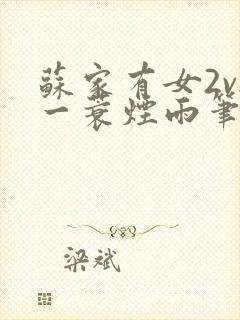 蘇家有女2v
一蓑煙雨筆
梁斌